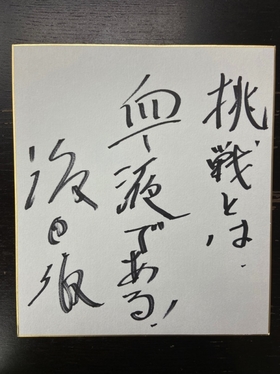 挑戦とは
血液である!